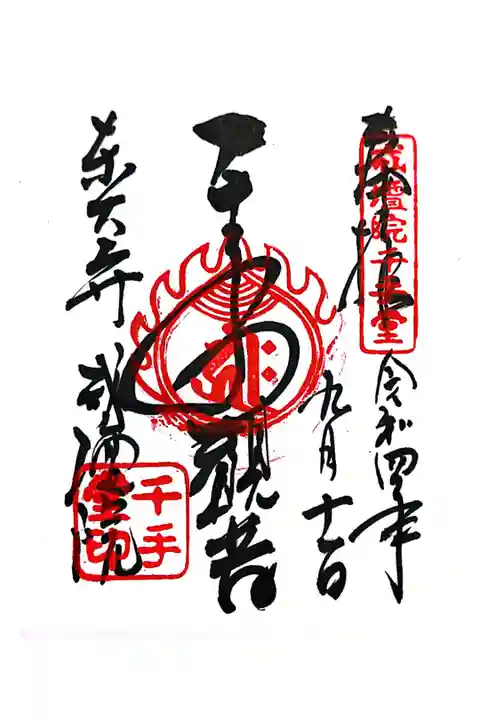 奉拝
戒壇院千手堂
令和四年
九月十一日
千手観音
東大寺 戒壇院
千手堂印